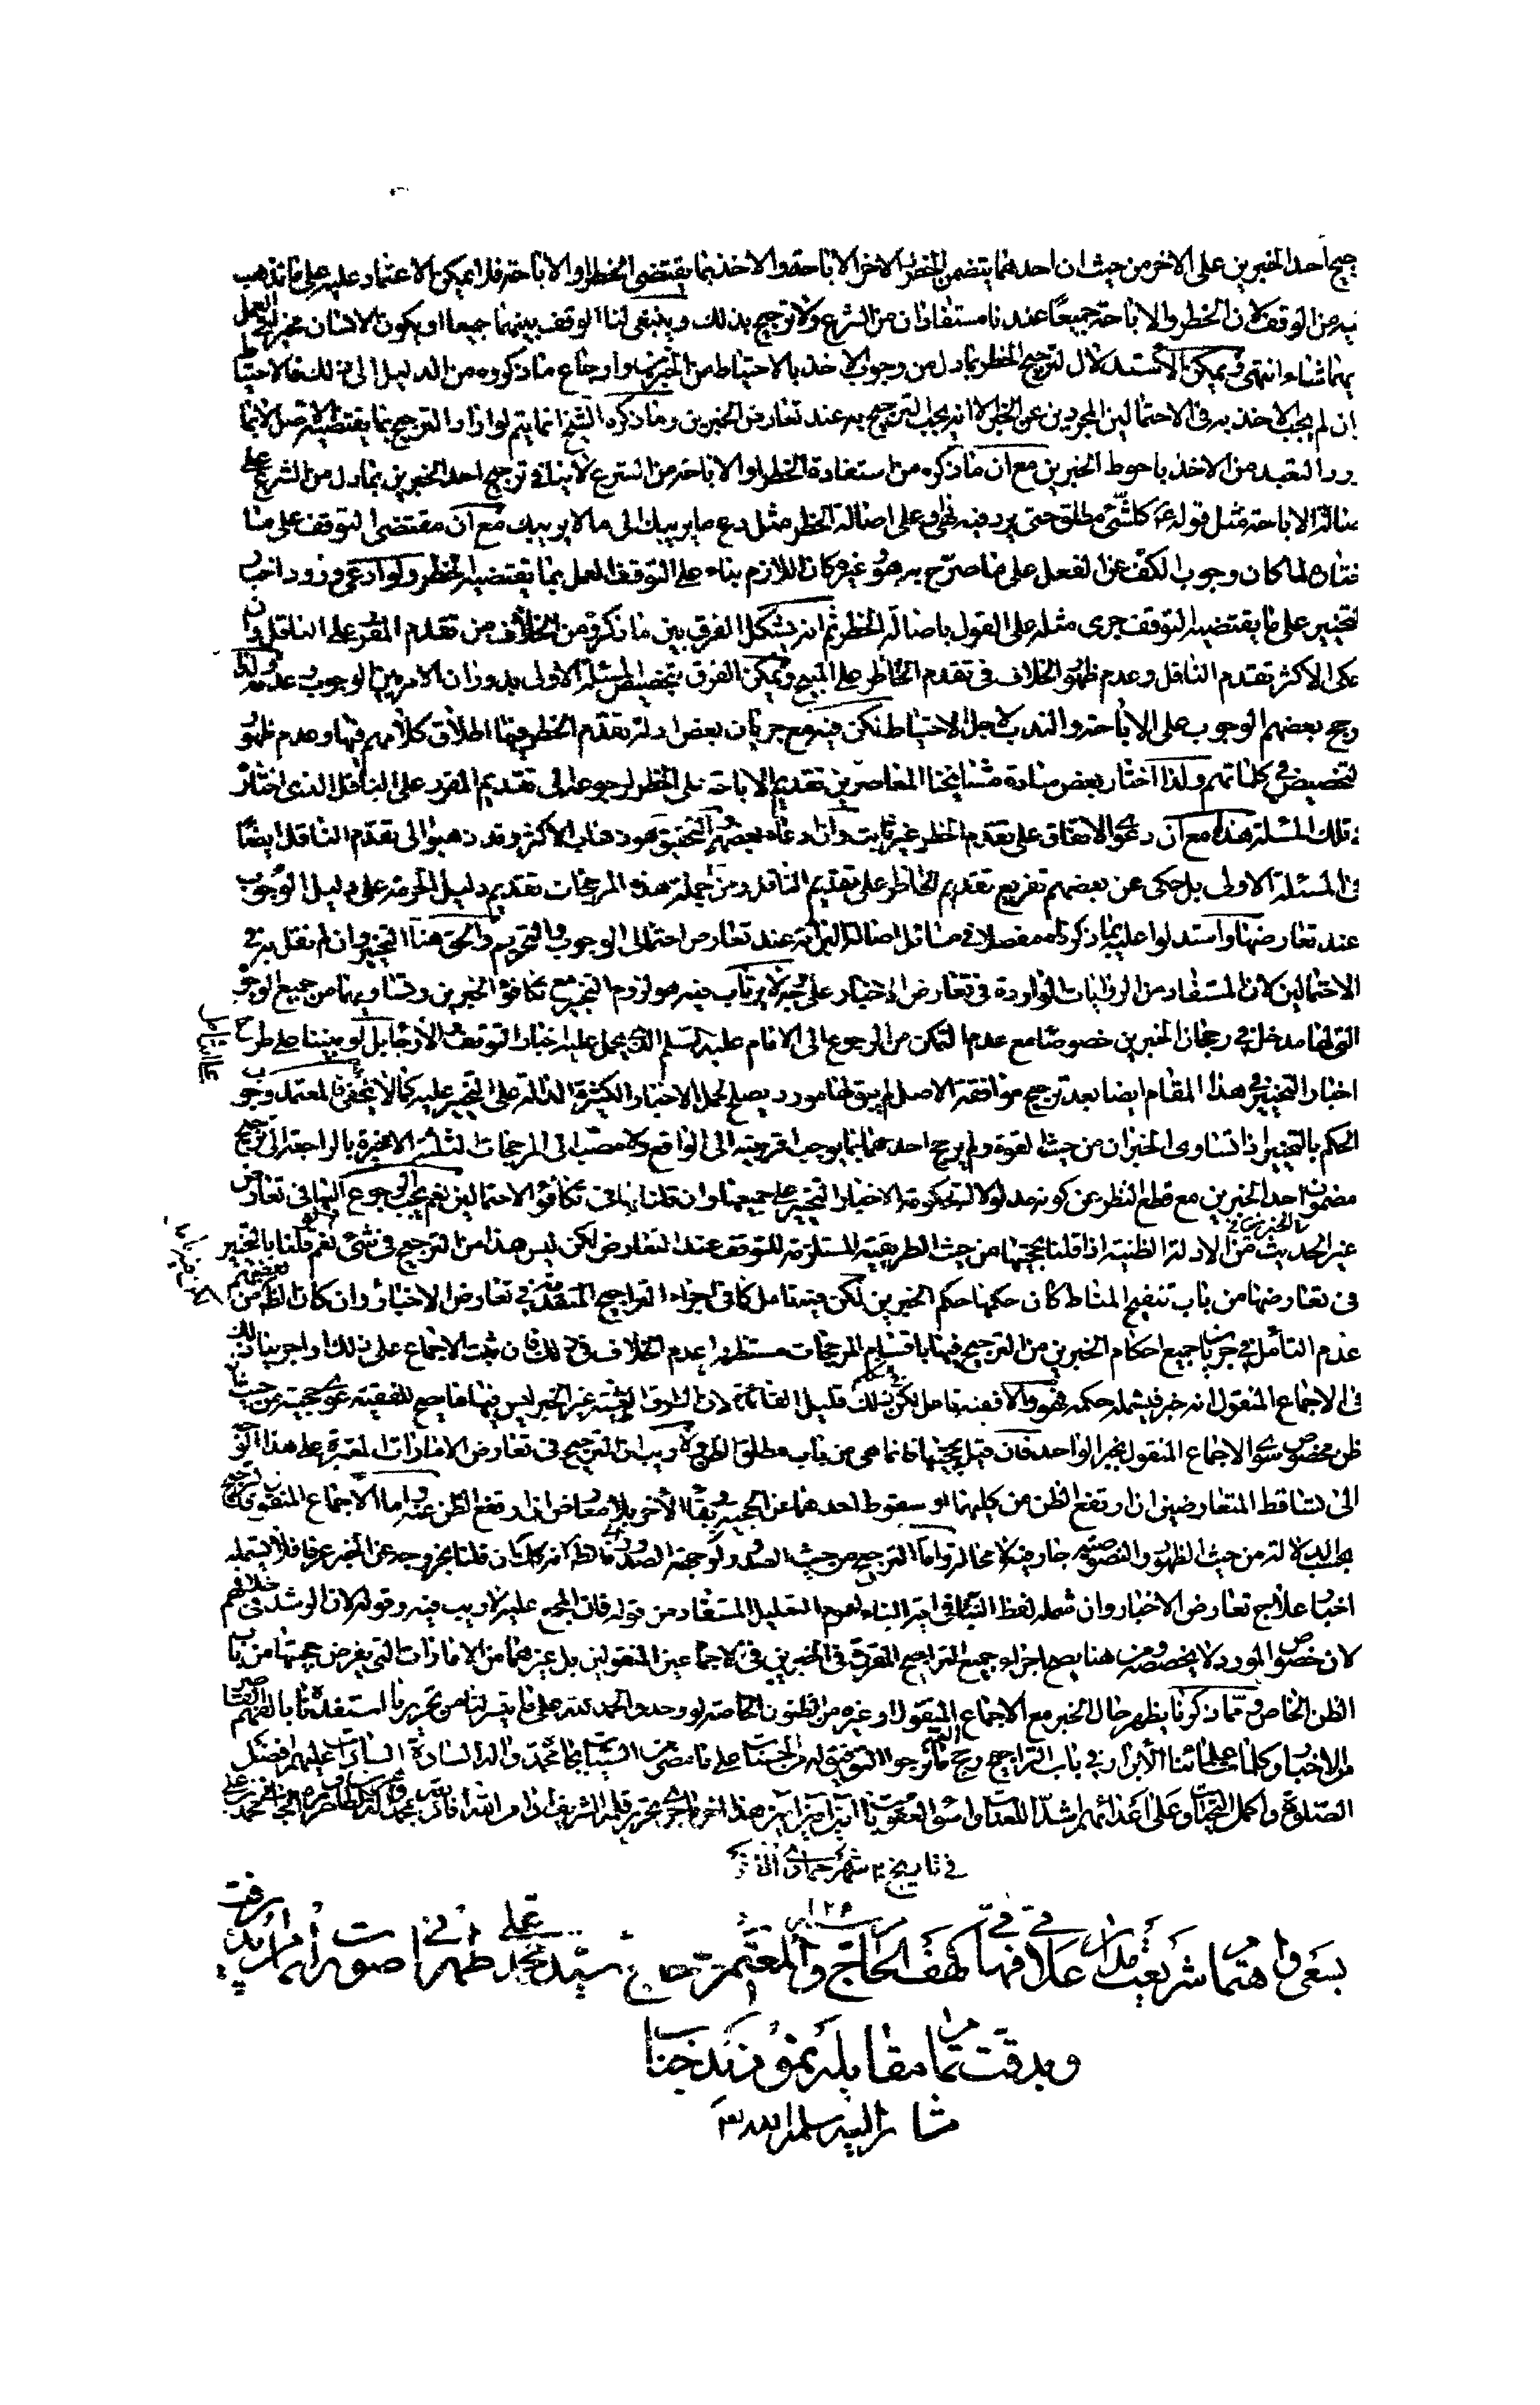 جيح احد الخبرين على الاخر من حيث ان احدهما يتضمن الحظر والاخر الاباحة والاخذ بما يقتضى الحظر او الاباحة فلا يمكن الاعتماد عليه على ما نذهب
ليه من الوقف لان الحظر والاباحة جميعا عندنا مستفادان من الشرع ولا ترجيح بذلك وينبغى لنا الوقف بينهما جميعا او يكون الانسان مخيرا فى العمل
بهما شاء انتهى ويمكن الاستدلال لترجيح الحظر بما دل من وجوب الاخذ بالاحتياط من الخبرين وارجاع ما ذكروه من الدليل الى ذلك فالاحتياط
ان لم يجب الاخذ به فى الاحتمالين المجردين عن الخبر الا انه يجب الترجيح به عند تعارض الخبرين وما ذكره الشيخ انما يتم لو اراد الترجيح بما يقتضيه الاصل لا بما
ورد التعبد من الاخذ باحوط الخبرين مع ان ما ذكره من استفادة الحظر او الاباحة من الشرع لا ينافى ترجيح احد الخبرين بما دل من الشرع على
صالة الاباحة مثل قوله ع كل شئ مطلق حتى يرد فيه نهى وعلى اصالة الحظر مثل دع ما يريبك الى ما لا يريبك مع ان مقتضى التوقف على ما
ختاره لما كان وجوب الكف عن الفعل على ما صرح به هو وغيره كان اللازم بناء على التوقف العمل بما يقتضيه الحظر ولو ادعى ورود اخبار
لتخيير على ما يقتضيه التوقف جرى مثله على القول باصالة الحظر ثم انه يشكل الفرق بين ما ذكروه من الخلاف من تقديم المقرر على الناقل وان
حكى الاكثر تقدم الناقل وعدم ظهور الخلاف فى تقدم الحاظر على المبيح ويمكن الفرق بتخصيص المسئلة الاولى بدوران الامر بين الوجوب وعدمه ولذا
رجح بعضهم الوجوب على الاباحة والندب لاجل الاحتياط لكن فيه مع جريان بعض ادلة تقدم الحظر فيها اطلاق كلامهم فيها وعدم ظهور
لتخصيص فى كلماتهم ولذا اختار بعض سادة مشايخنا المعاصرين تقديم الاباحة على الحظر لرجوعه الى تقديم المقرر على الناقل الذى اختاره
فى تلك المسئلة هذا مع ان دعوى الاتفاق على تقدم الحظر غير ثابت وان ادعاه بعضهم والتحقيق هو ذهاب الاكثر وقد ذهبوا الى تقدم الناقل ايضا
فى المسئلة الاولى بل حكى عن بعضهم تفريع تقديم الحاظر على تقديم الناقل ومن جملة هذه المرجحات تقديم دليل الحرمة على دليل الوجوب
عند تعارضهما واستدلوا عليه بما ذكرناه مفصلا فى مسائل اصالة البرائة عند تعارض احتمالى الوجوب والتحريم والحق هنا التخيير وان لم نقل به فى
الاحتمالين لان المستفاد من الروايات الواردة فى تعارض الاخبار على وجه لا يرتاب فيه هو لزوم التخيير مع تكافؤ الخبرين وتساويهما من جميع الوجوه
التى لها مدخل فى رجحان الخبرين خصوصا مع عدم التمكن من الرجوع الى الامام عليه السلم الذى يحمل عليه اخبار التوقف والارجاء بل لو بنينا على طرح
اخبار التخيير فى هذا المقام ايضا بعد ترجيح موافقة الاصل لم يبق لها مورد يصلح لحمل الاخبار الكثيرة الدالة على التخيير عليه كما لا يخفى على المتامل فالمعتمد وجوب
الحكم بالتخيير اذا تساوى الخبران من حيث القوة ولم يرجح احدهما بما يوجب اقربيته الى الواقع ولا يلتفت الى المرجحات الثلث الاخيرة الراجعة الى ترجيح
مضمون احد الخبرين مع قطع النظر عن كونه مدلولا له لحكومة الاخبار التخيير على جميعها وان قلنا بها فى تكافؤ الاحتمالين نعم يجب الرجوع اليها فى تعارض
غير الخبرين الحديث من الادلة الظنية اذا قلنا بحجيتها من حيث الطريقية المستلزمة للتوقف عند التعارض لكن ليس هذا من الترجيح فى شئ نعم لو قلنا بالتخيير
فى تعارضها من باب تنقيح المناط كان حكمها حكم الخبرين لكن فيه تامل كما فى اجراء التراجيح المتقدمة فى تعارض الاخبار وان كان الظاهر من بعضهم
عدم التأمل فى جريان جميع احكام الخبرين من الترجيح فيها باقسام المرجحات مستظهرا عدم الخلاف فى ذلك فان ثبت الاجماع على ذلك او اجرينا ذلك
فى الاجماع المنقول انه خبر فيشمله حكمه فهو والا ففيه تامل لكن ذلك قليل الفائدة لان الطرق الظنية غير الخبر ليس فيها ما يصح للفقيه دعوى حجيته من حيث انه
ظن مخصوص سوى الاجماع المنقول بخبر الواحد فان قيل بحجيتها فانما هى من باب مطلق الظن ولا ريب ان المرجع فى تعارض الامارات المعتبرة على هذا الوجه
الى تساقط المتعارضين ان ارتفع الظن من كليهما او سقوط احدهما عن الحجية وبقاء الاخر بلا معارض ان ارتفع الظن عنه واما الاجماع المنقول فالترجيح
بحسب الدلالة من حيث الظهور والنصوصية جار فيه لا محالة واما الترجيح من حيث الصدور او جهة الصدور فالظاهر انه كذلك وان قلنا بخروجه عن الخبر عرفا فلا يشمله
اخبار علاج تعارض الاخبار وان شمله لفظ النبأ فى اية النبأ لعموم التعليل المستفاد من قوله فان المجمع عليه لا ريب فيه وقوله لان الرشد فى خلافهم
لان خصوص المورد لا يخصصه ومن هنا يصح اجراء جميع التراجيح المقررة فى الخبرين فى الاجماعين المنقولين بل غيرهما من الامارات التى يفرض حجيتها من باب
الظن الخاص ومما ذكرنا يظهر حال الخبر مع الاجماع المنقول او غيره من الظنون الخاصة لو وجد والحمد لله على ما تيسر لنا من تحرير ما استفدناه بالفهم القاصر
من الاخبار وكلمات علمائنا الأبرار فى باب التراجيح رجح الله ما نرجوا التوفيق له من الحسنات على ما مضى من السيئات بجاه محمد واله السادة السادات عليهم افضل
الصلوة واكمل التحيات وعلى اعدائهم اشد اللعنات واسوء العقوبات امين امين امين هذا اخر ما جرى بتحرير قلمه الشريف ادام الله
فى تاريخ شهر جمادى
بسعى و اهتمام شريعتمدار علام فهام كهف الحاج والمعتمرين حاج سيد محمد على طهرانى صورت اتمام پذيرفت
و بدقت تمام مقابله نمودند جناب
مشار اليه سلمه الله